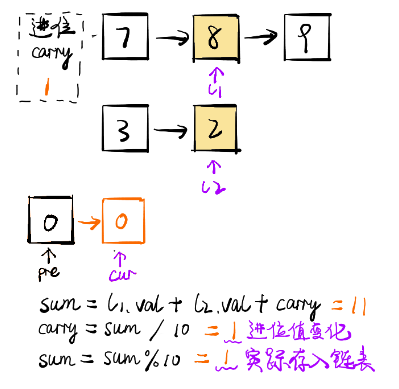 进位
carry
1
7 → 8 → 9
l1
3 → 2
l2
0 → 0
pre
cur
sum = l1.val + l2.val + carry = 11
carry = sum / 10 = 1 进位值变化
sum = sum % 10 = 1 实际存入链表